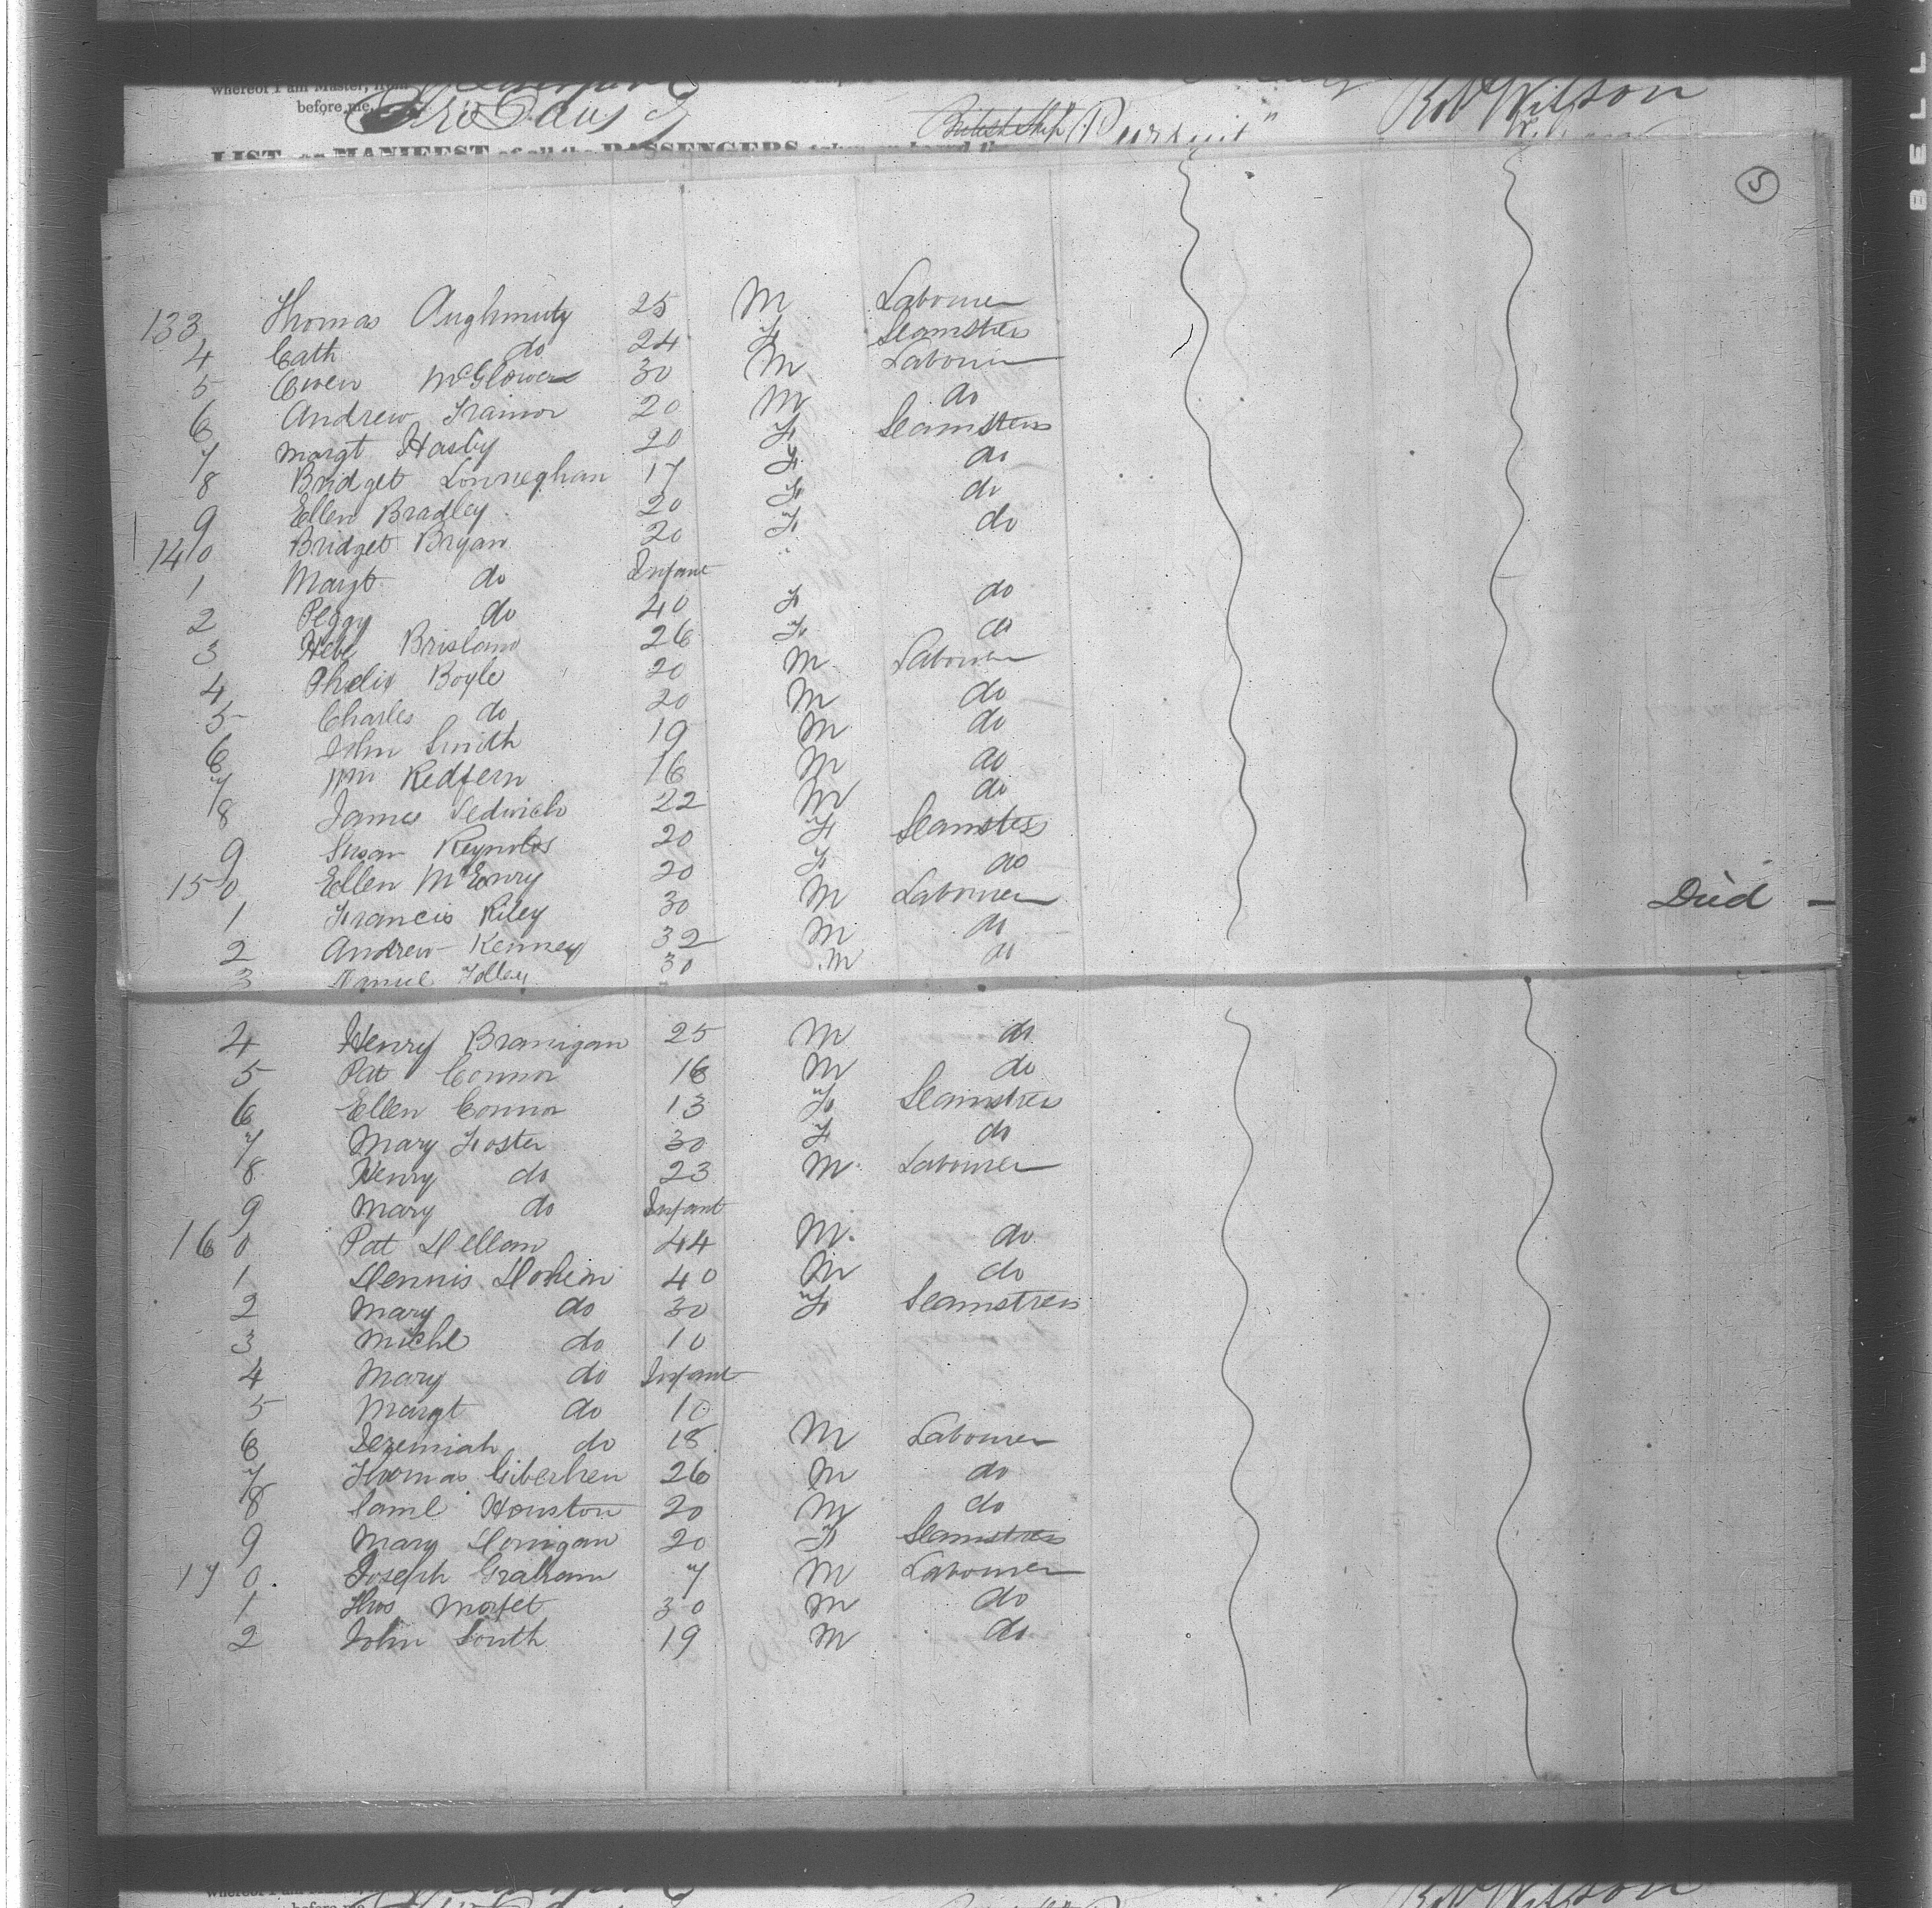 whereof I am Master, from Liverpool
before me,
British Ship "Pursuit" Rob Wilson
LIST or MANIFEST of all the PASSENGERS taken on board the
5
133 Thomas Aughmuty 25 M Labourer
4 Cath do 24 F Seamstress
5 Owen McGlowen 30 M Labourer
6 Andrew Trainor 20 M do
7 Margt Hasby 20 F Seamstress
8 Bridget Lonneghan 17 F do
9 Ellen Bradley 20 F do
140 Bridget Bryan 20 F do
1 Margt do Infant
2 Peggy do 40 F do
3 Brisland 26 F do
4 Phelix Boyle 20 M Labourer
5 Charles do 20 M do
6 John Smith 19 M do
7 Wm Redfern 16 M do
8 James Sedwich 22 M do
9 Susan Reynolds 20 F Seamstress
150 Ellen McEnry 20 F do
1 Francis Riley 30 M Labourer Died —
2 Andrew Kenney 32 M do
3 Daniel Folley 30 M do
4 Henry Branigan 25 M do
5 Pat Connor 16 M do
6 Ellen Connor 13 F Seamstress
7 Mary Foster 30 F do
8 Henry do 23 M Labourer
9 Mary do Infant
160 Pat Dellan 44 M do
1 Dennis 40 M do
2 Mary do 30 F Seamstress
3 Michl do 10
4 Mary do Infant
5 Margt do 10
6 Jeremiah do 18 M Labourer
7 Thomas Giberhen 26 M do
8 Saml Houston 20 M do
9 Mary Donigan 20 F Seamstress
170 Joseph Graham 7 M Labourer
1 Thos Mofet 30 M do
2 John South 19 M do
whereof I am
before me
Rob Wilson
BELL